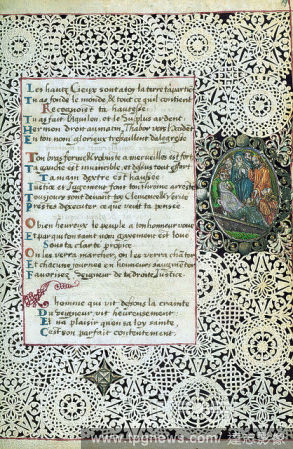 Les hautz Cieux sont a toy la terre t'apartient
Tu as fondé le monde & tout ce qui contient
Recognoist ta hautesse
Tu as fait l'Aquilon, et le Su plus ardent
Hermon droit au main, Thabor vers l'Occident
En ton nom glorieux tressaillent d'alegresse
Ton bras ferme & robuste a merveilles est fort
Ta gauche est invincible, et dessus tout effort
Ta main dextre est haussée
Justice et Jugement font ton throsne arresté
Tousjours sont devant toy Clemence & Verité
Prestes d'executer ce que veut ta pensée
O bien heureux le peuple a ton honneur voué
Et par qui ton saint nom gayement est loué
Sous ta clarté propice
On les verra marcher, on les verra
Et chacune journée en honneurs
Favorisez Seigneur de ta droite Justice.
L'homme qui vit dessous la crainte
Du Seigneur, vit heureusement
Et a plaisir que sa loy sainte,
C'est son parfait contentement.
www.tpgnews.com / 達志影像